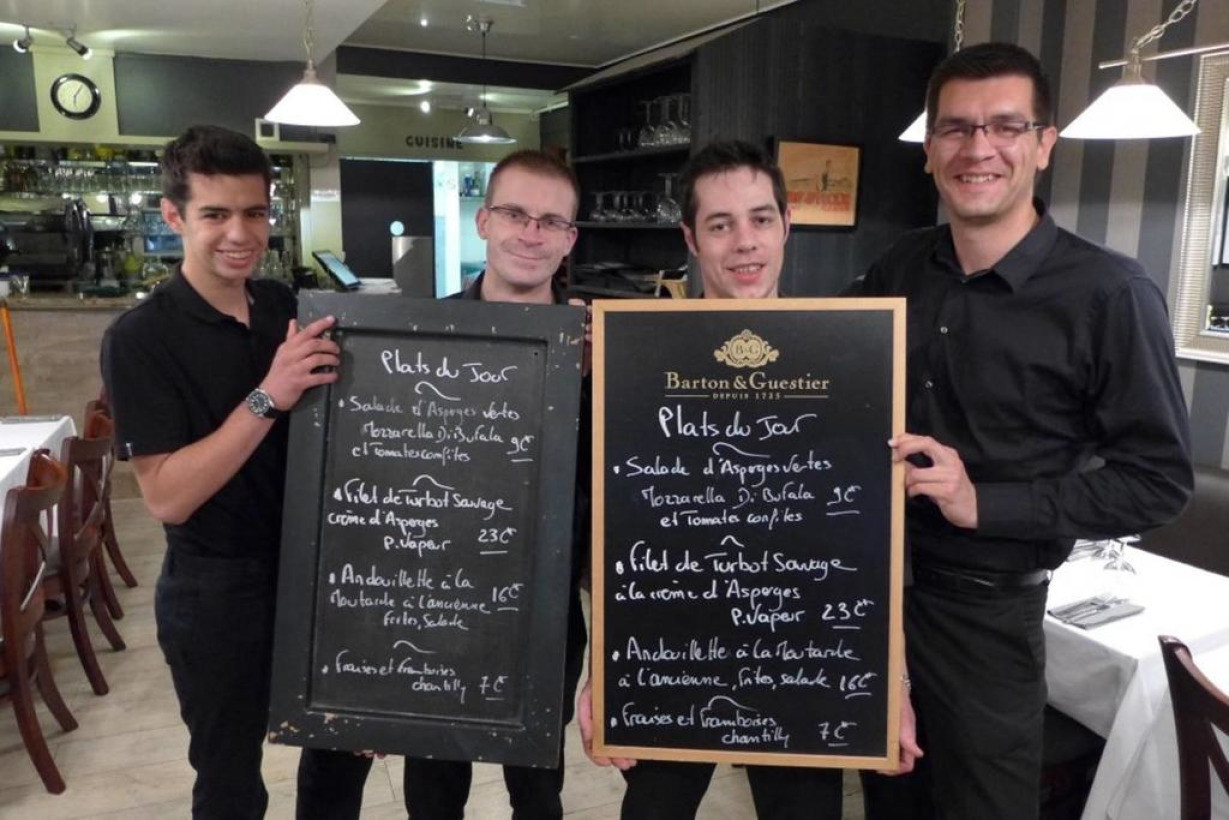 CUISINE
Plats du Jour
• Salade d'Asperges Vertes
Mozzarella Di Bufala 9€
et Tomates confites
• Filet de Turbot Sauvage
crème d'Asperges
P. Vapeur 23€
• Andouillette à la
Moutarde à l'ancienne 16€
frites, Salade
• Fraises et Framboises
chantilly 7€
B&G
Barton & Guestier
DEPUIS 1725
Plats du Jour
• Salade d'Asperges Vertes
Mozzarella Di Bufala 9€
et Tomates confites
• Filet de Turbot Sauvage
à la crème d'Asperges
P. Vapeur 23€
• Andouillette à la Moutarde
à l'ancienne, frites, salade 16€
• Fraises et Framboises
chantilly 7€